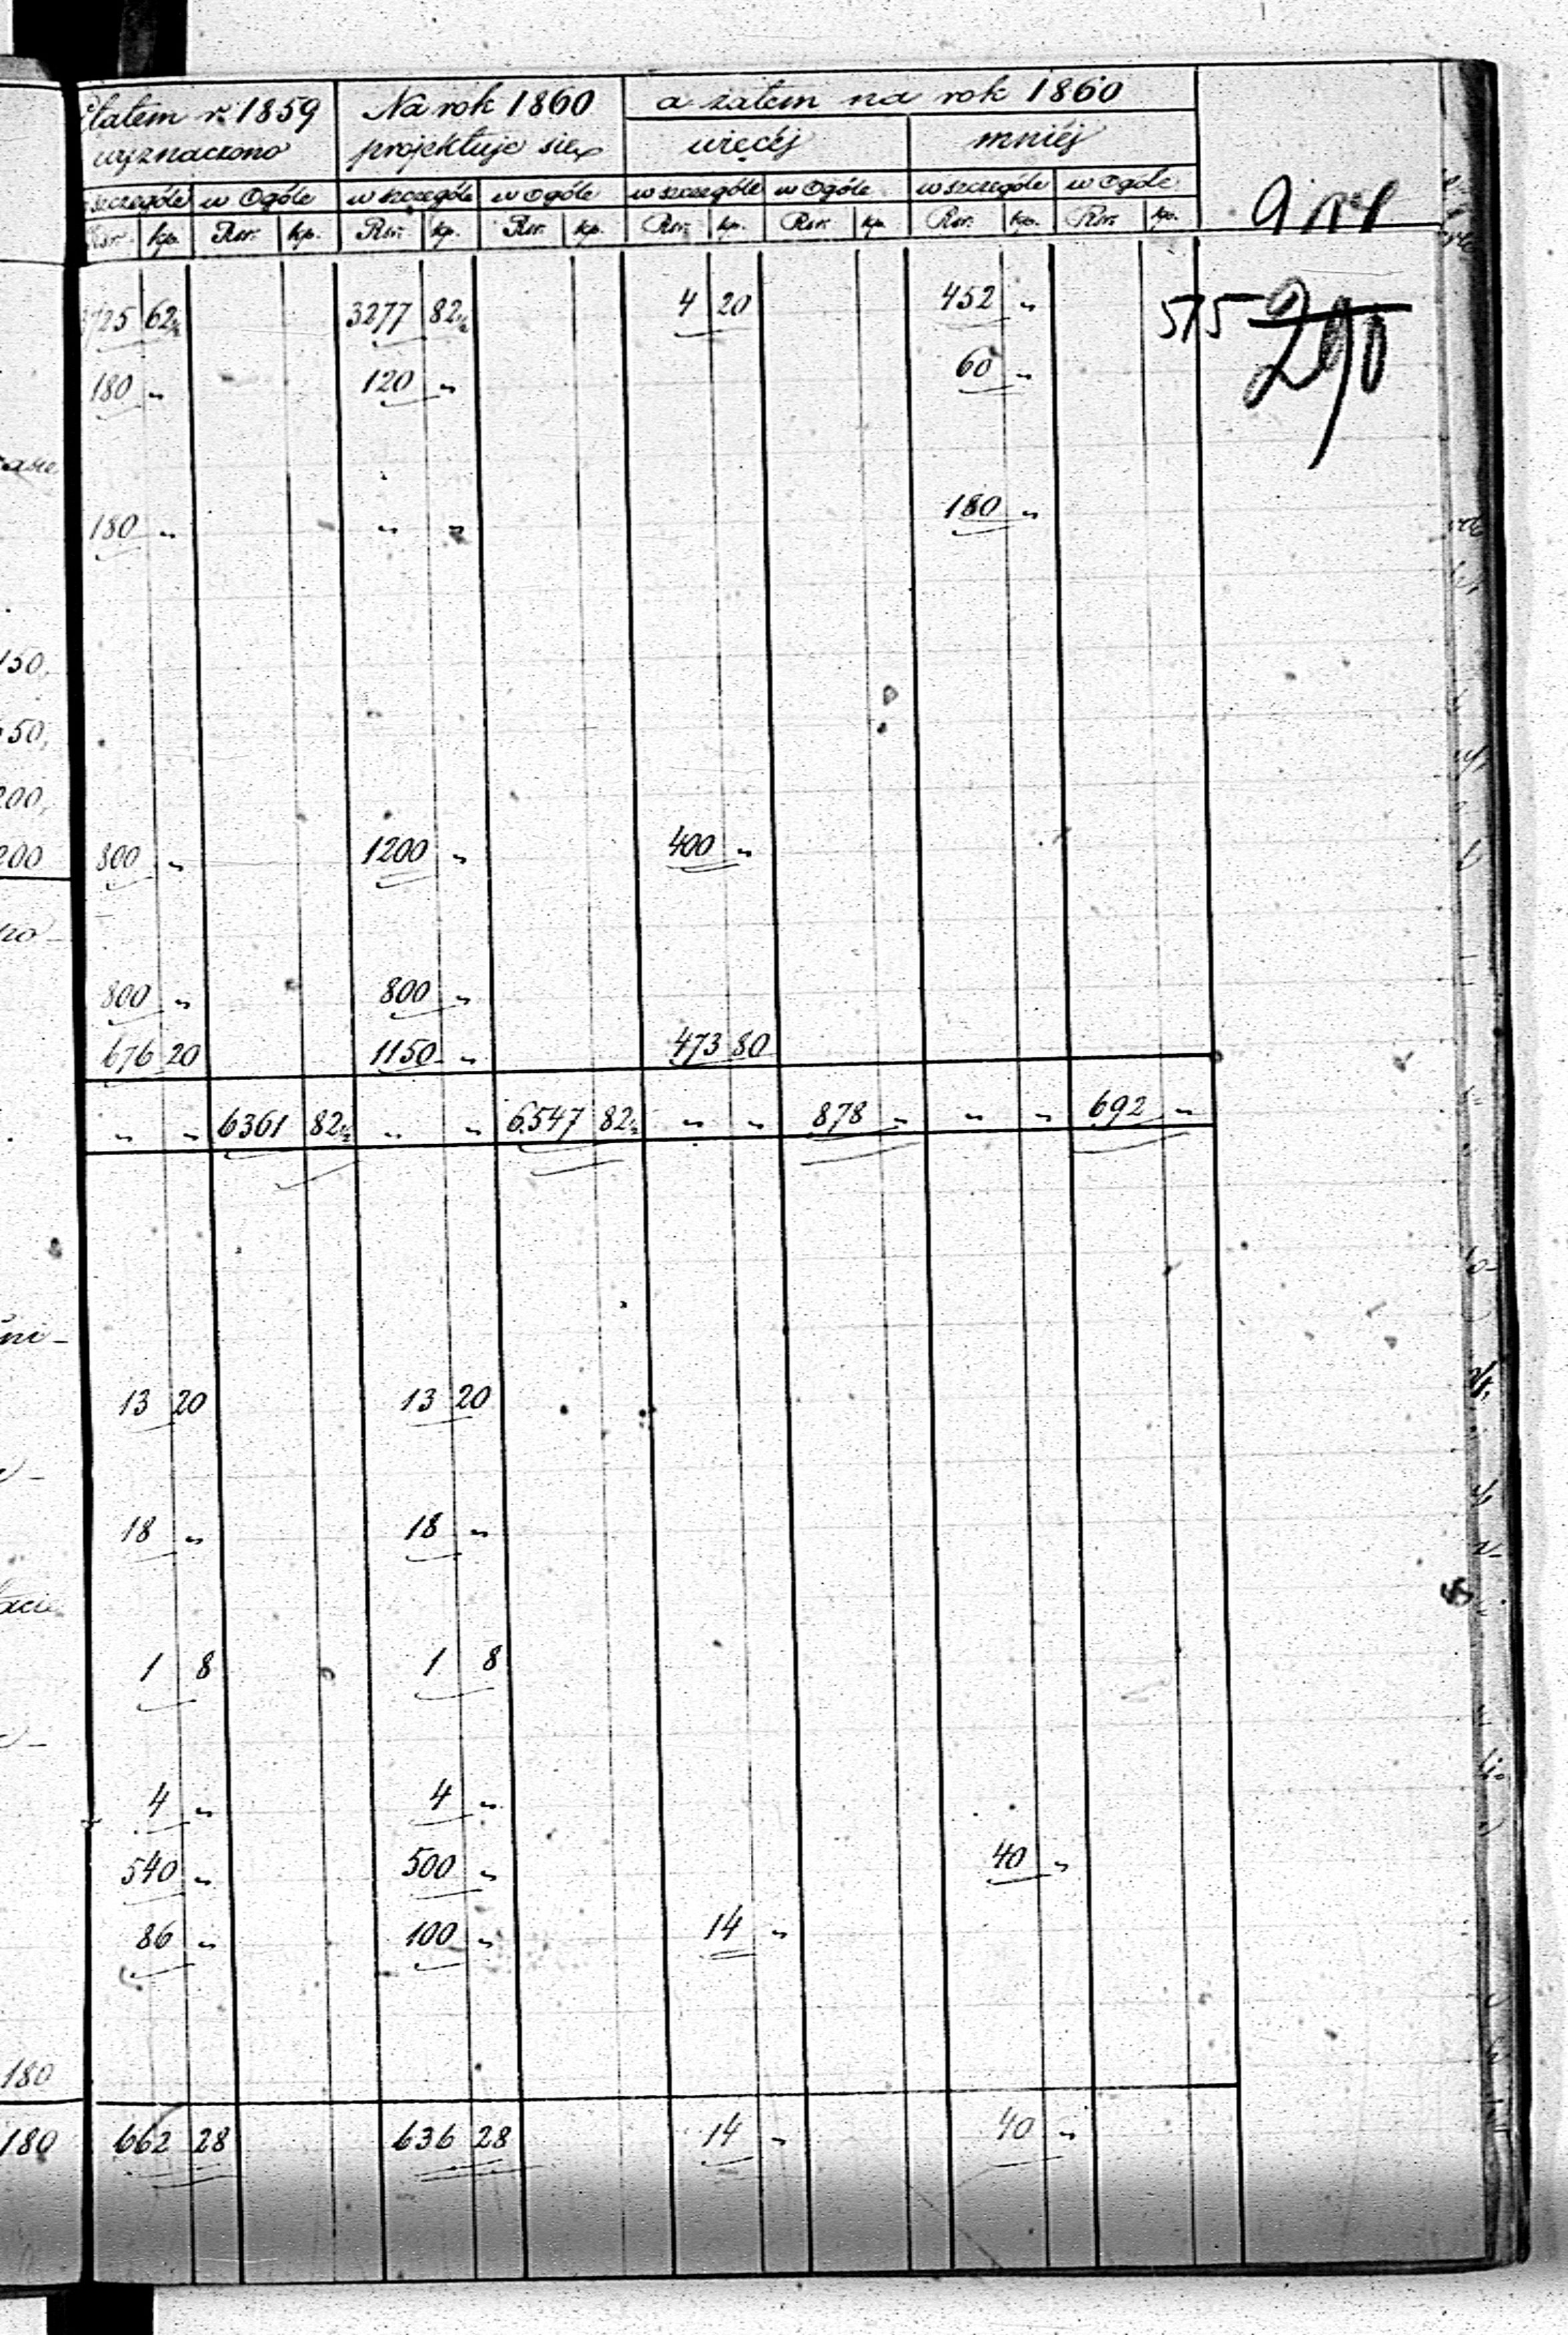 Etatem r. 1859 Na rok 1860 a zatem na rok 1860
wyznaczono projektuje się więcéj mniéj
szczególe w Ogóle w szczególe w ogóle w szczególe w Ogóle w szczególe w Ogóle
Rsr. kp. Rsr. kp. Rsr. kp. Rsr. kp. Rsr. kp. Rsr. kp. Rsr. kp. Rsr. kp.
575 290
725 62½ 3277 82½ 4 20 452 "
180 " 120 " 60 "
180 " " " 180 "
150,
50,
200,
200 800 " 1200 " 400 "
800 " 800 "
676 20 1150 " 473 80
" " 6361 82½ " " 6547 82½ " " 878 " " " 692 "
13 20 13 20
18 " 18 "
1 8 1 8
4 " 4 "
540 " 500 " 40 "
86 " 100 " 14 "
180
180 662 28 636 28 14 " 40 "